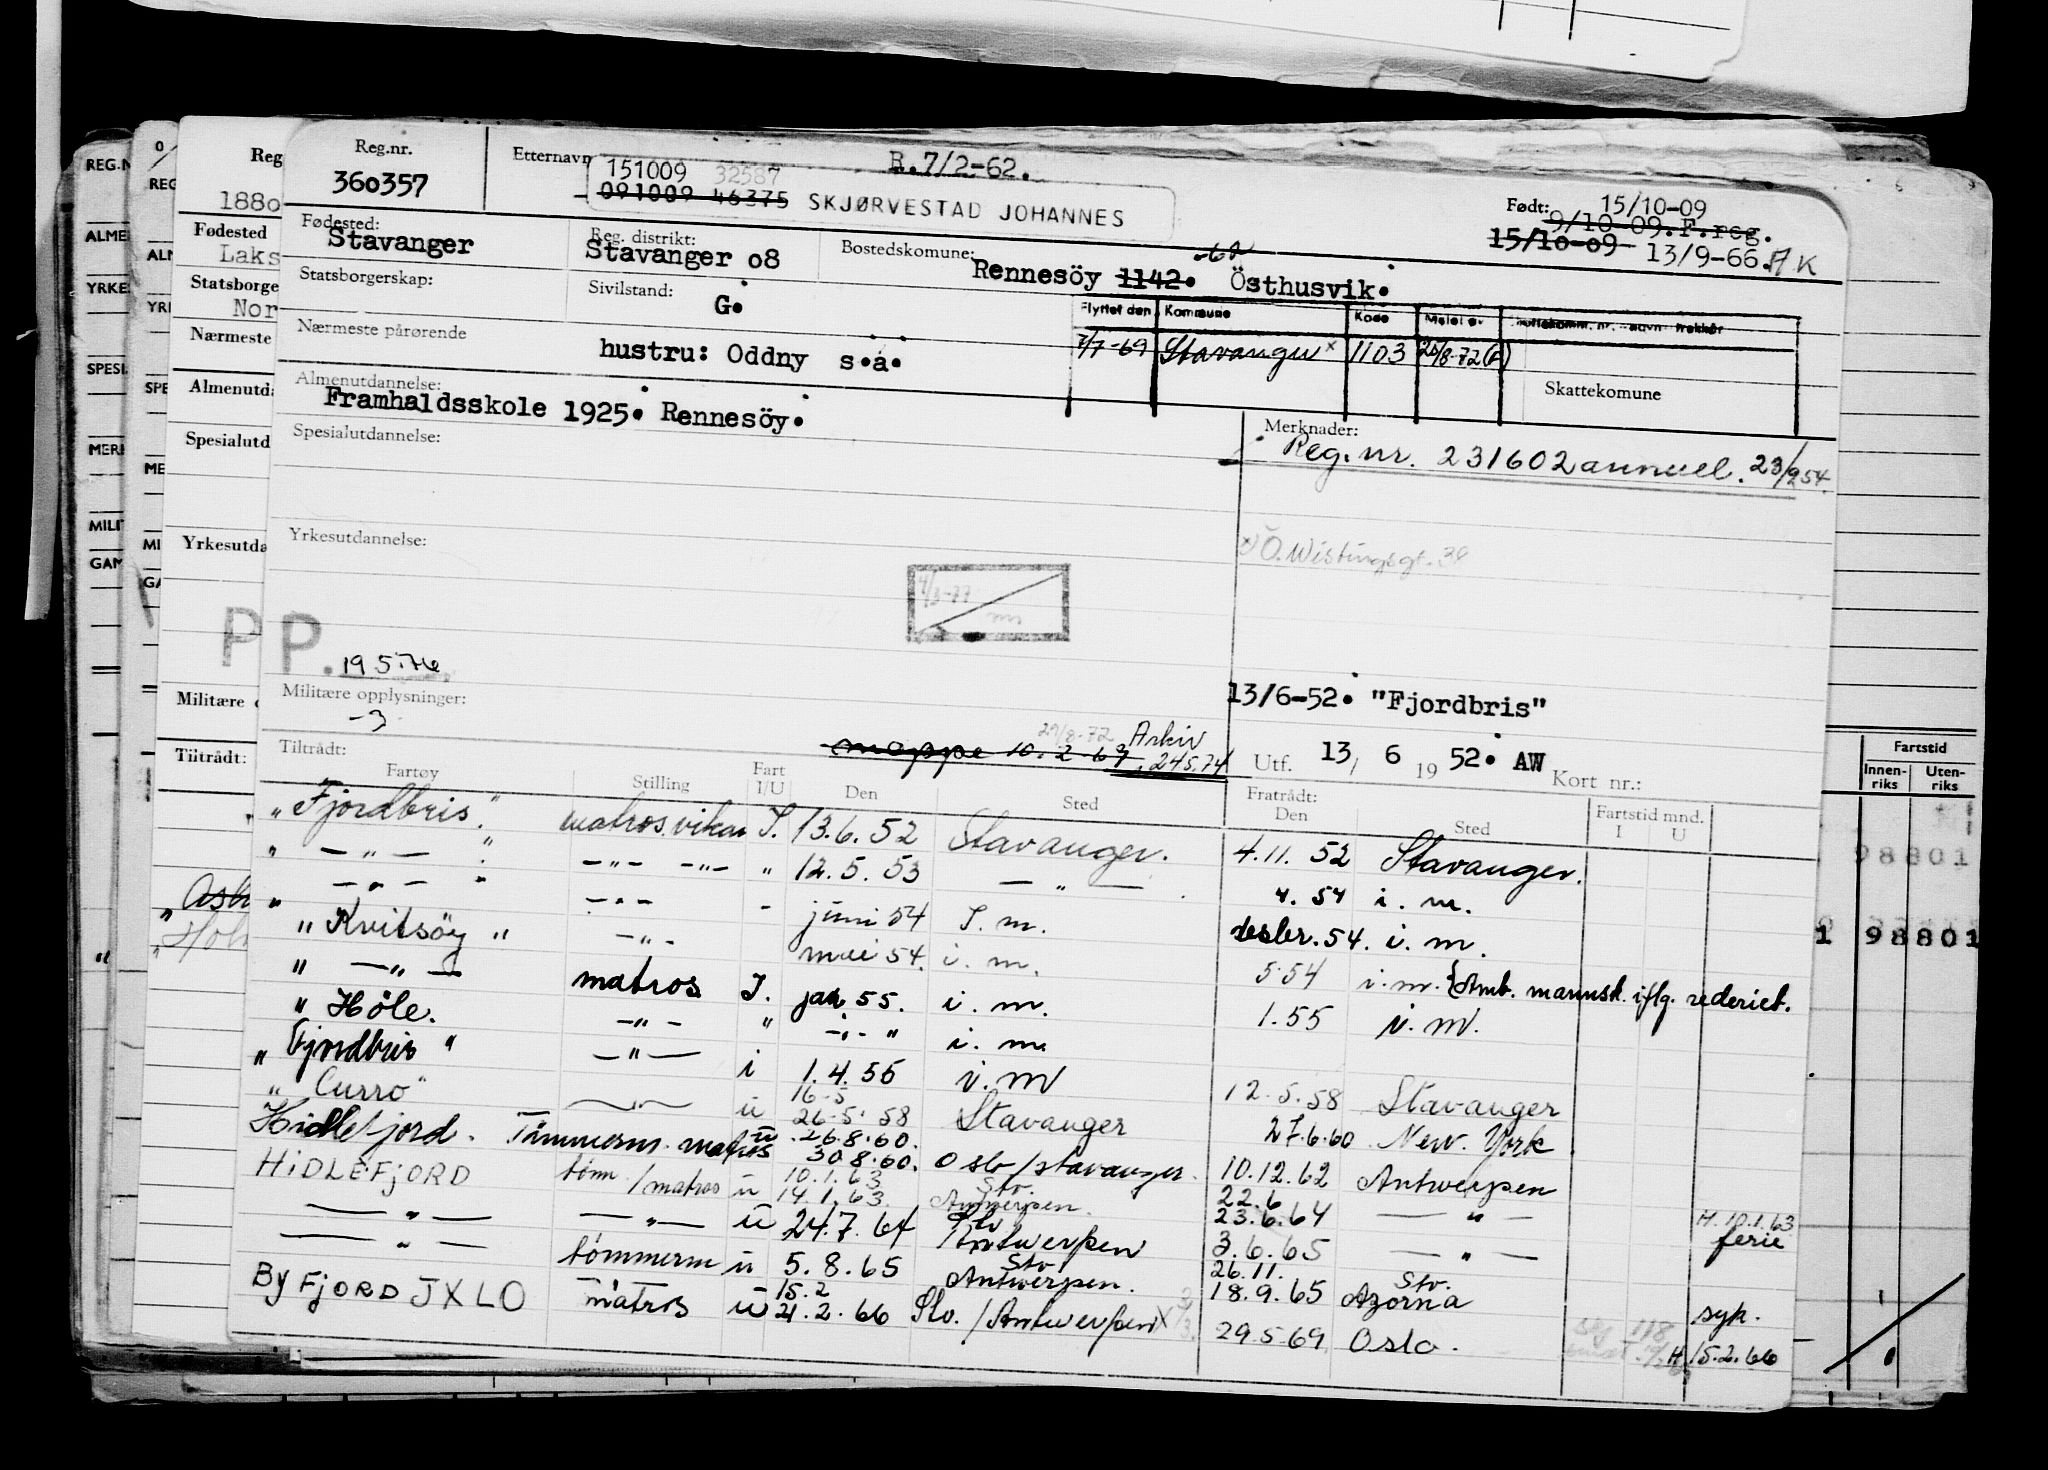 Reg.nr.
360357
Etternavn
151009 32587
091009 46375 SKJØRVESTAD JOHANNES
R.7/2-62.
Født: 15/10-09
9/10-09.F.reg.
15/10-09 13/9-66. AK
Fødested:
Stavanger
Reg. distrikt:
Stavanger o8
Bostedskomune:
Rennesöy 1142. Östhusvik.
Statsborgerskap:
Sivilstand:
G.
Flyttet den Kommune Kode
7/7-69 Stavanger x 1103 20/8-72
Skattekomune
Nærmeste pårørende
hustru: Oddny s.å.
Almenutdannelse:
Framhaldsskole 1925. Rennesöy.
Spesialutdannelse:
Merknader:
Reg. nr. 231602 annuel. 23/9 54.
Yrkesutdannelse:
x) O. Wistingsgt. 38
PP. 19 5.76
Militære opplysninger:
-3-
13/6-52. "Fjordbris"
29/8-72 Arkiv
mappe 10.2-69 24.5.74
Utf. 13/ 6 19 52. AW Kort nr.:
Tiltrådt:
Fratrådt:
Fartøy Stilling Fart I/U Den Sted Den Sted Fartstid mnd. I U
"Fjordbris" matros.vikar I. 13.6.52 Stavanger. 4.11. 52 Stavanger.
" — " — " —"— —"— " 12.5.53 — " — 4.54 i. m.
" — " — " —"— - juni 54 I. m. desbr. 54. i. m.
"Kvitsöy" —"— mai 54. i. m. 5.54 i. m. {Amb. mannsk. iflg. rederiet.
" — " — matros I. jan 55. i. m. 1.55 i. m.
"Höle. —"— " —"— " i. m.
"Fjordbris" —"— i 1.4.56 i. m 12.5.58 Stavanger
"Curro" u 16-5 26-5-58 Stavanger 27.6.60 New. York
Hidlefjord. Tömmerm. matros u 26.8.60. 30 8.60. Oslo/stavanger. 10.12.62 Antwerpen
HIDLEFJORD tömm/matros u 10.1.63 14.1.63. Stv. Antwerpen. 22.6 23.6.64 — " — H. 10.1.63 ferie
— " — —"— u 24.7.64 Stv Antwerpen 3.6.65 — " —
— " — tömmerm u 5.8.65 Stv Antwerpen. 26.11. 18.9.65 Stv. Azorna syk.
BYFJORD JXLO matros u 15.2 21.2.66 Stv./Antwerpen x 29.5.69 Oslo. H 15.2.66
REG.N
ALME
YRKE
SPESI
MERI
MILIT
GAM
Reg
1880
Fødested
Laks
Statsborge
Nor
Nærmeste
Almenutda
Spesialutd
Yrkesutda
Militære
Tiltrådt:
Fartstid
Innen-riks Uten-riks
98801
1 98801